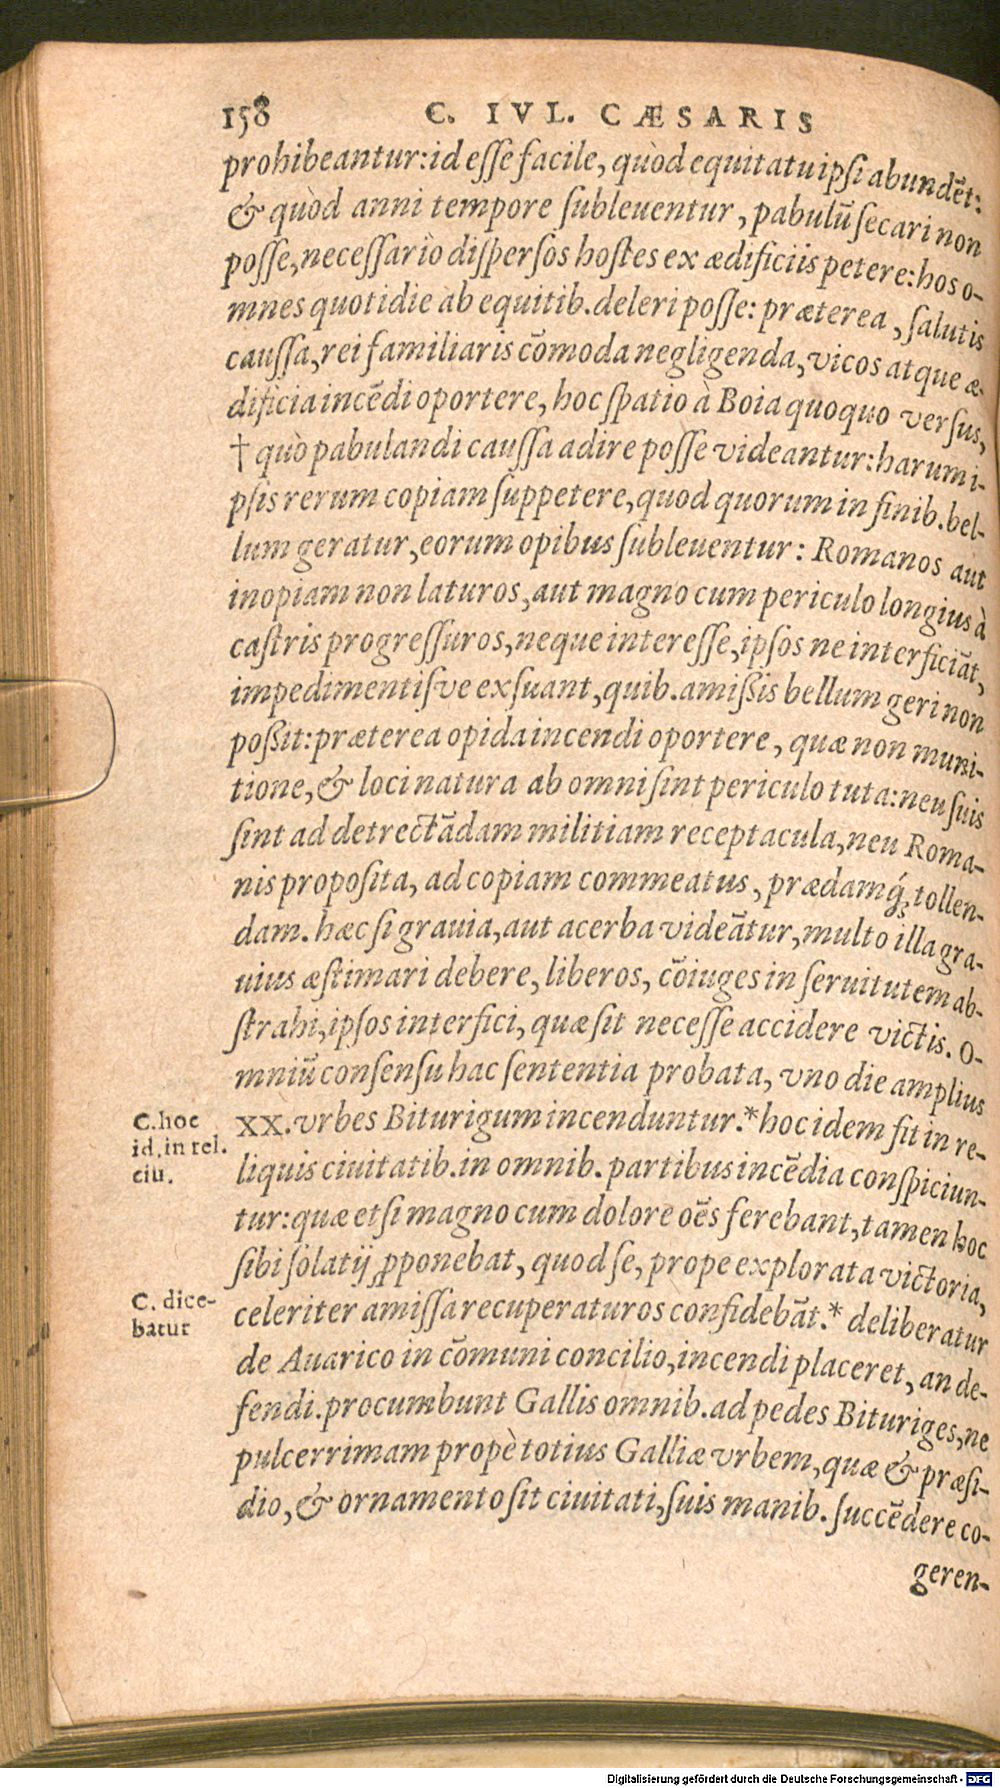 158 C. IVL. CÆSARIS
prohibeantur: id eſſe facile, quòd equitatu ipſi abundẽt:
& quòd anni tempore ſubleuentur, pabulũ ſecari non
poſſe, neceſſariò diſperſos hoſtes ex ædificiis petere: hos o-
mnes quotidie ab equitib. deleri poſſe: præterea, ſalutis
cauſſa, rei familiaris cõmoda negligenda, vicos atque æ-
dificia incẽdi oportere, hoc ſpatio à Boia quoquo verſus,
† quò pabulandi cauſſa adire poſſe videantur: harum i-
pſis rerum copiam ſuppetere, quod quorum in finib. bel-
lum geratur, eorum opibus ſubleuentur: Romanos aut
inopiam non laturos, aut magno cum periculo longius à
caſtris progreſſuros, neque intereſſe, ipſos ne interficiãt,
impedimentiſve exſuant, quib. amißis bellum geri non
poßit: præterea opida incendi oportere, quæ non muni-
tione, & loci natura ab omni ſint periculo tuta: neu ſuis
ſint ad detrectãdam militiam receptacula, neu Roma-
nis propoſita, ad copiam commeatus, prædamq́; tollen-
dam. hæc ſi grauia, aut acerba videãtur, multo illa gra-
uius æſtimari debere, liberos, cõiuges in ſeruitutem ab-
ſtrahi, ipſos interfici, quæ ſit neceſſe accidere victis. O-
mniũ conſenſu hac ſententia probata, vno die amplius
XX. vrbes Biturigum incenduntur.* hoc idem fit in re-
liquis ciuitatib. in omnib. partibus incẽdia conſpiciun-
tur: quæ etſi magno cum dolore oẽs ferebant, tamen hoc
ſibi ſolatij ꝓponebat, quod ſe, prope explorata victoria,
celeriter amiſſa recuperaturos confidebãt.* deliberatur
de Auarico in cõmuni concilio, incendi placeret, an de-
fendi. procumbunt Gallis omnib. ad pedes Bituriges, ne
pulcerrimam propè totius Galliæ vrbem, quæ & præſi-
dio, & ornamento ſit ciuitati, ſuis manib. ſuccẽdere co-
geren-
C. hoc
id. in rel.
ciu.
C. dice-
batur
Digitalisierung gefördert durch die Deutsche Forschungsgemeinschaft - DFG